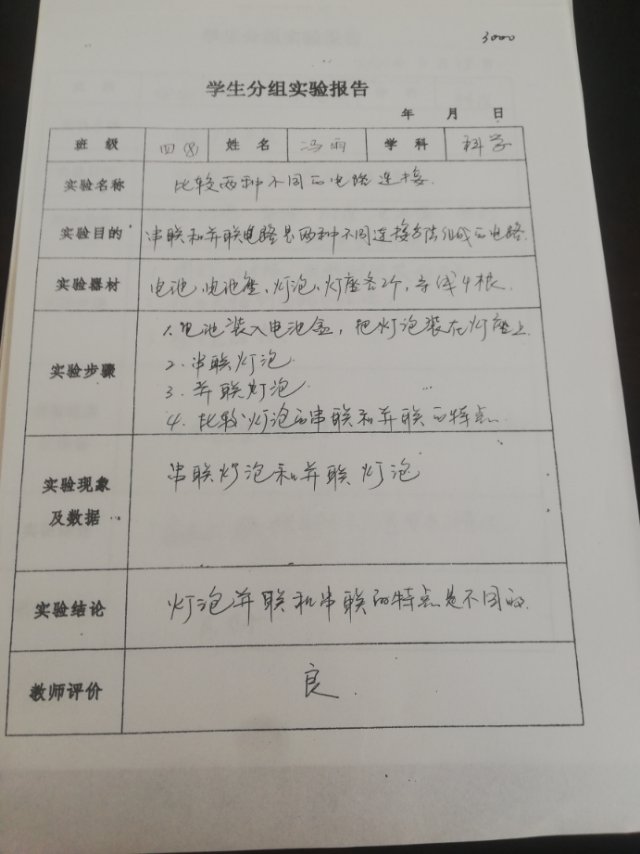 3000
学生分组实验报告
年 月 日
班 级 四(8) 姓 名 冯雨 学 科 科学
实验名称 比较两种不同的电路连接.
实验目的 串联和并联电路是两种不同连接方法组成的电路.
实验器材 电池、电池盒、灯泡、灯座各2个,导线4根.
实验步骤
1.电池装入电池盒,把灯泡装在灯座上
2.串联灯泡.
3.并联灯泡.
4.比较灯泡的串联和并联的特点.
实验现象
及数据
串联灯泡和并联灯泡
实验结论 灯泡并联和串联的特点是不同的.
教师评价 良.